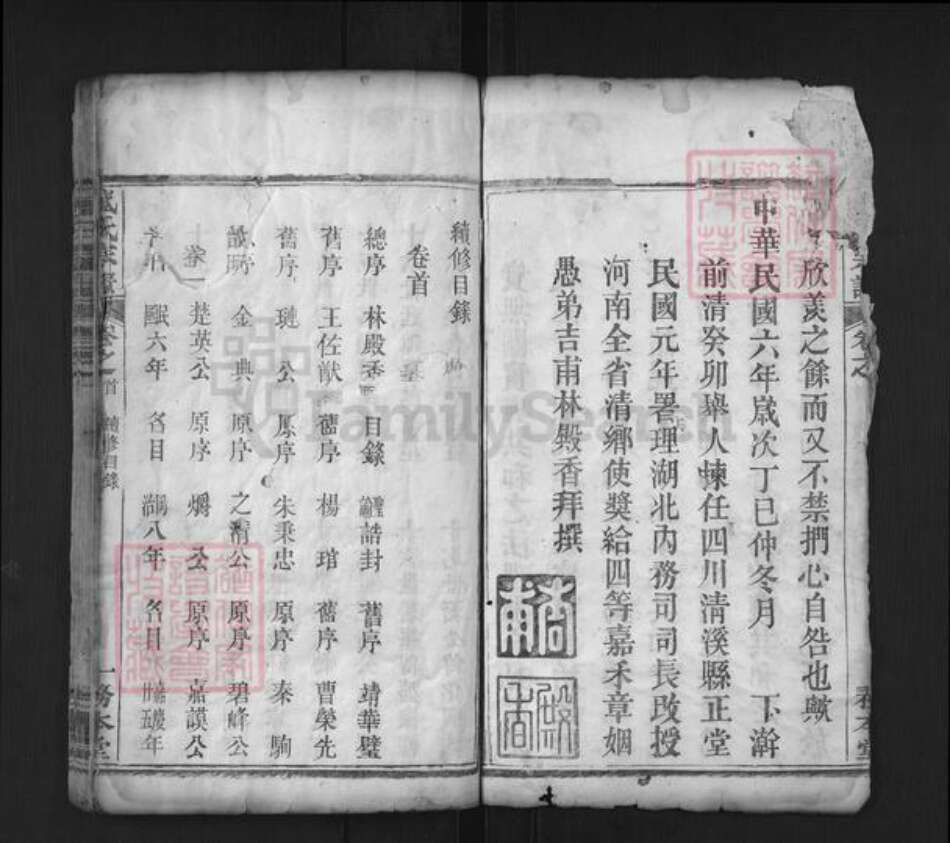 欣羡之餘而又不禁捫心自咎也歟
中華民國六年歲次丁巳仲冬月 下澣
前清癸卯舉人揀任四川清溪縣正堂
民國元年署理湖北內務司司長改授
河南全省清鄉使獎給四等嘉禾章姻
愚弟吉甫林殿香拜撰
續修目錄
卷首
總序 林殿香 目錄 誥封 舊序 靖華璧
舊序 王佐猷 舊序 楊琯 舊序 曹榮先
舊序 璉公 原序 朱秉忠 原序 秦駒
金典 原序 之清公 原序 碧峰公
卷一 楚英公 原序 爛公 原序 嘉謨公
六年 名目 八年 名目 五年
卷之首 續修目錄 一 務本堂
FamilySearch